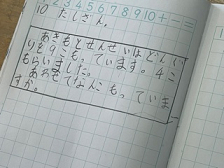 1 2 3 4 5 6 7 8 9 10 + − =
10 たしざん。
あきもとせんせいはどんぐ
りを9こもっています。4こ
もらいました。
あわせてなんこもっていま
すか。